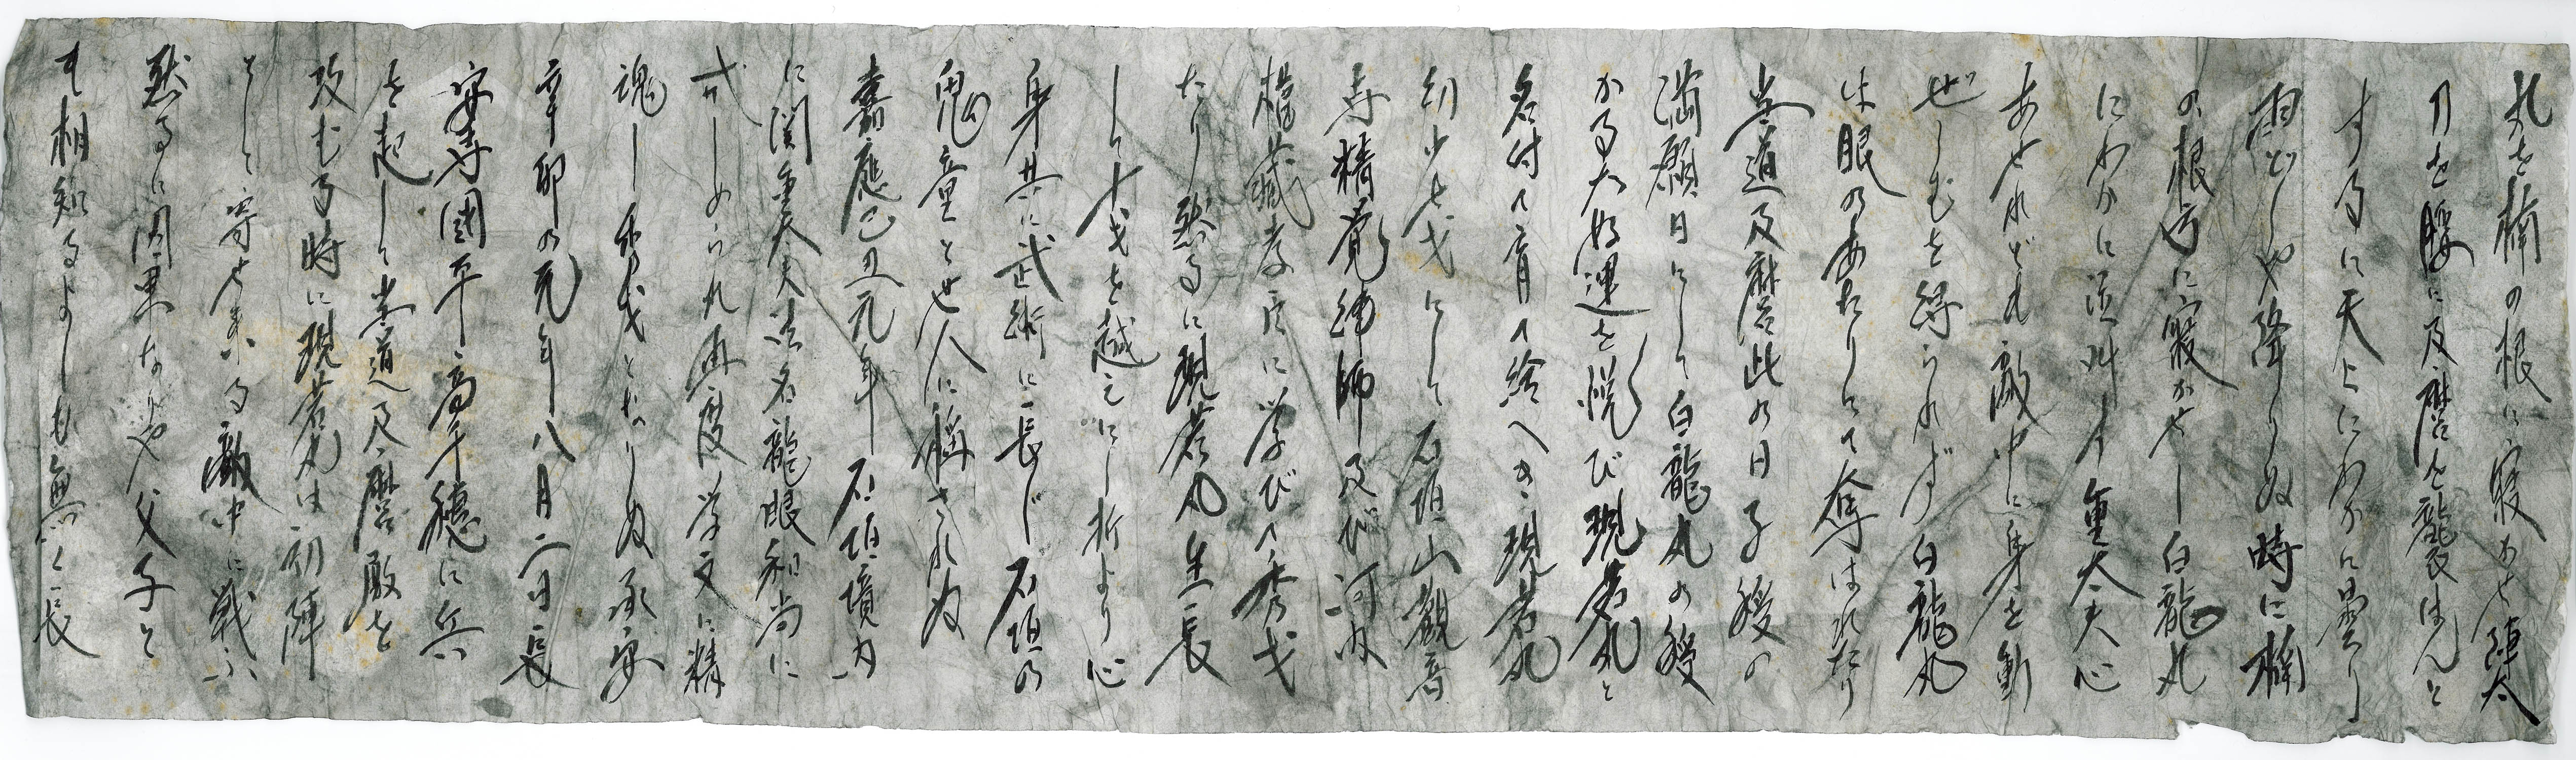 丸を楠の根に寝かせ陣太
刀を腰に及麿を襲はんと
する時に天上にわかに曇り
雨どしや降りぬ時に楠
の根方に寝かせし白龍丸
にわかに泣叫す重太夫心
あせれども敵中に身を動
ぜしむを得られず白龍丸
は眼のあたりにて奪はれたり
堂道及麿此の日子授の
満願日にして白龍丸の授
かる大好運を悦び現若丸と
名付て育て給へき現若丸
幼少七才にして石垣山観音
寺精覚律師及び河内
楊蔵孝房に学びて秀才
たり然るに現若丸生長
して十才を越えにし折より心
身共に武術に長じ石垣の
鬼童と世人に称されぬ
嘉應己丑元年石垣境内
に関重太夫法名龍眼和尚に
戒しめられ再度学文に精
魂し秀才となりぬ承安
辛卯の元年八月二日長
安寿國平高千穂に兵
を起して堂道及麿敵を
攻む時に現若丸は初陣
として寄せ来る敵中に戦ふ
然るに因果なりや父子と
も相知るよしも無く長